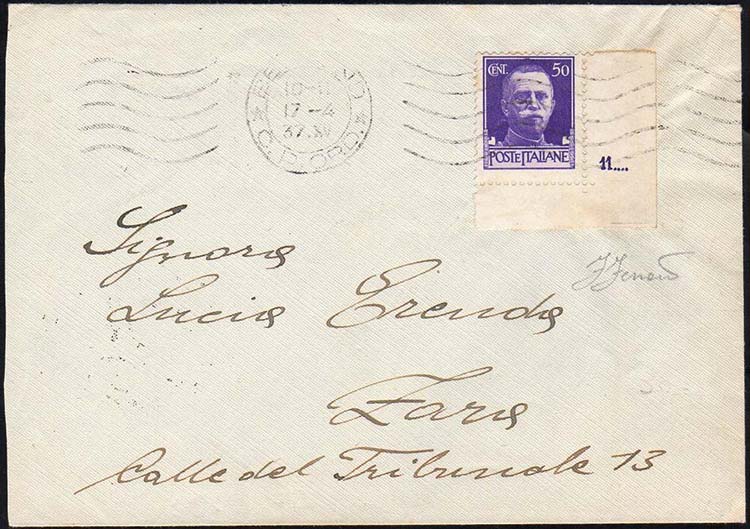 17-4
37.XV
CENT. 50
POSTE ITALIANE
11....
Signora
Lucia Erenda
Zara
Calle del Tribunale 13